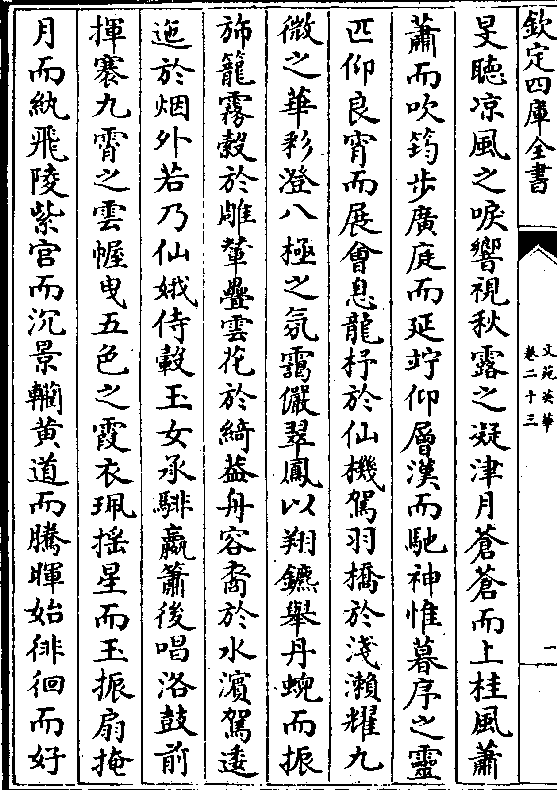 欽定四庫全書
文苑英華
卷二十三
一
旻聴凉風之唳響視秋露之凝津月蒼蒼而上桂風蕭
蕭而吹筠步廣庭而延竚仰層漢而馳神惟暮序之靈
匹仰良宵而展會息龍杼於仙機駕羽橋於淺瀨耀九
微之華彩澄八極之氛靄儼翠鳳以翔鑣舉丹蜺而振
斾籠霧縠於雕輦疊雲花於綺葢舟容裔於水濱駕逶
迤於烟外若乃仙娥侍轂玉女承騑嬴簫後唱洛鼓前
揮褰九霄之雲幄曳五色之霞衣珮揺星而玉振扇掩
月而紈飛陵紫宫而沉景轥黄道而騰暉始徘徊而好